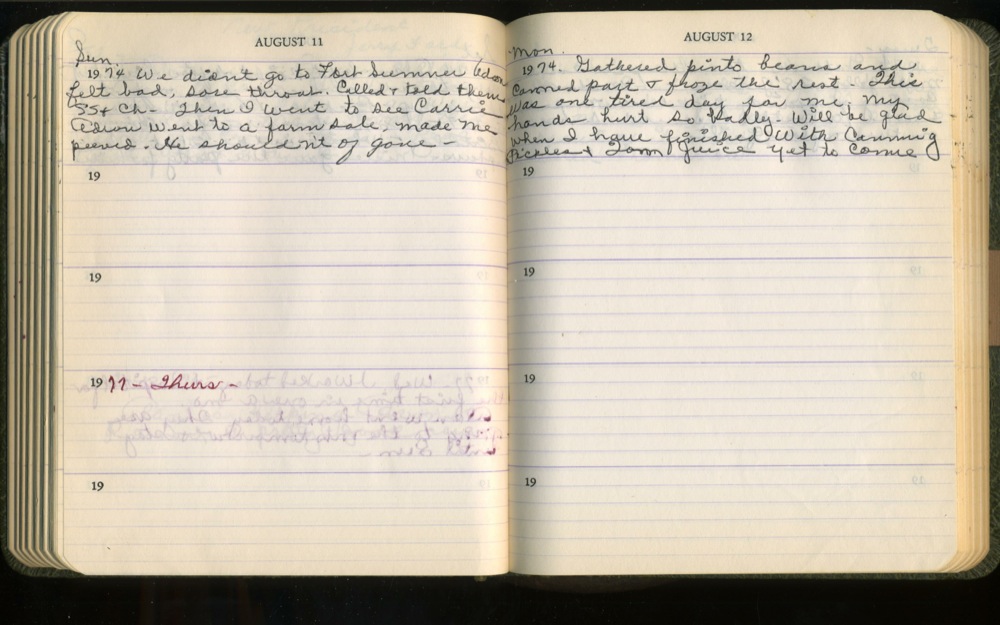 AUGUST 11
Sun.
1974 We didn't go to Fort Sumner Edson
felt bad, sore throat. Called & told them
SS & Ch - Then I went to see Carrie
Edson went to a farm sale, made me
peeved. He should n't of gone -
19
19
19 77 - Thurs -
19
AUGUST 12
Mon.
1974. Gathered pinto beans and
canned part & froze the rest. This
was one tired day for me, my
hands hurt so badly. Will be glad
when I have finished with canning
Pickles & Tom juice yet to come
19
19
19
19